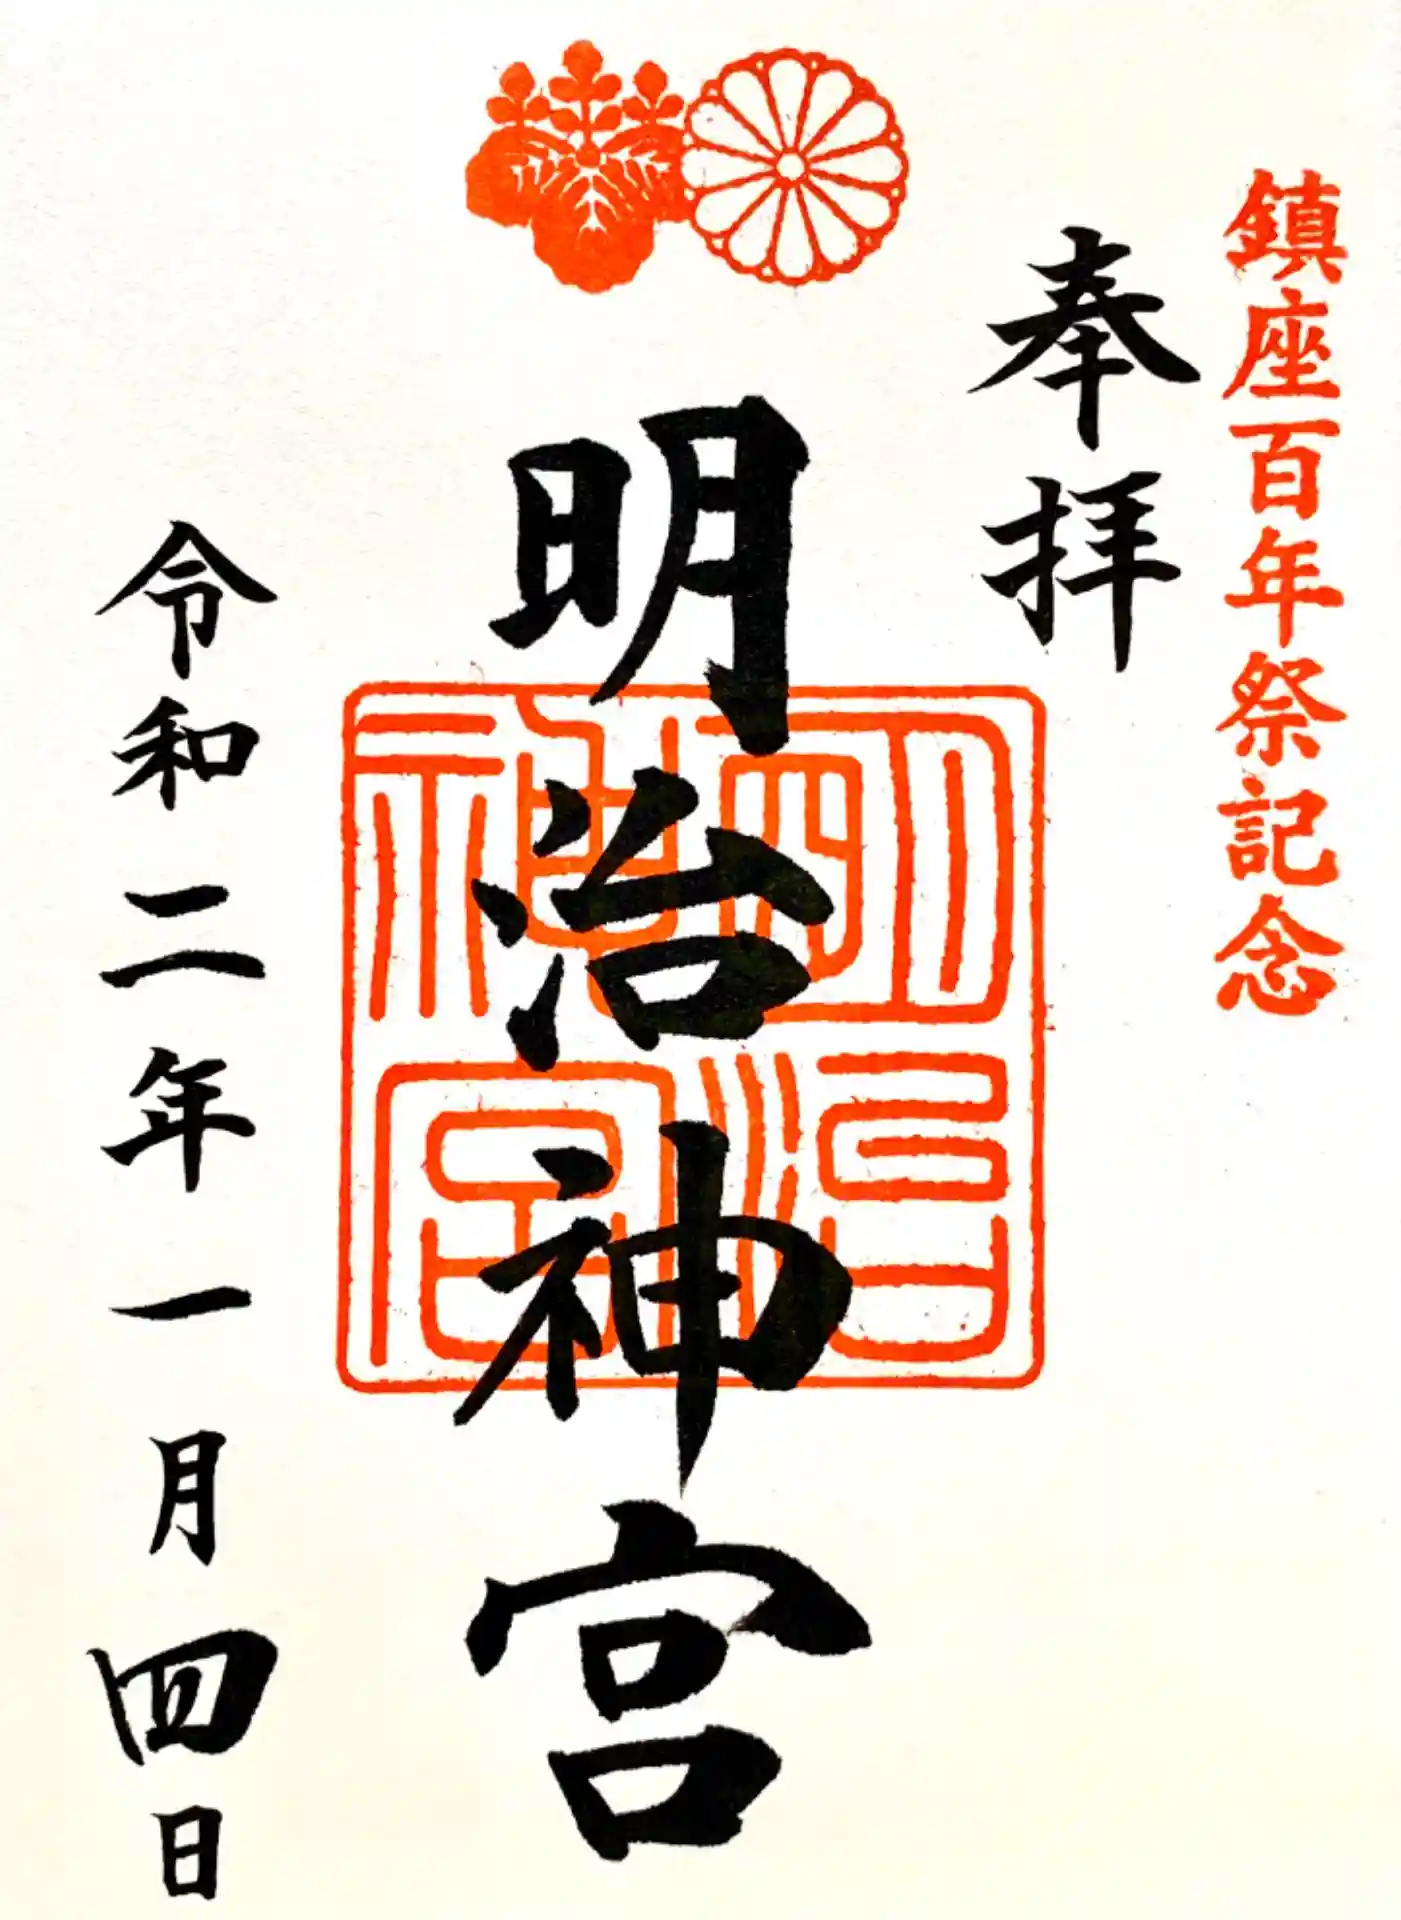 鎮座百年祭記念
奉拝
明治神宮
明治神宮
令和二年一月四日